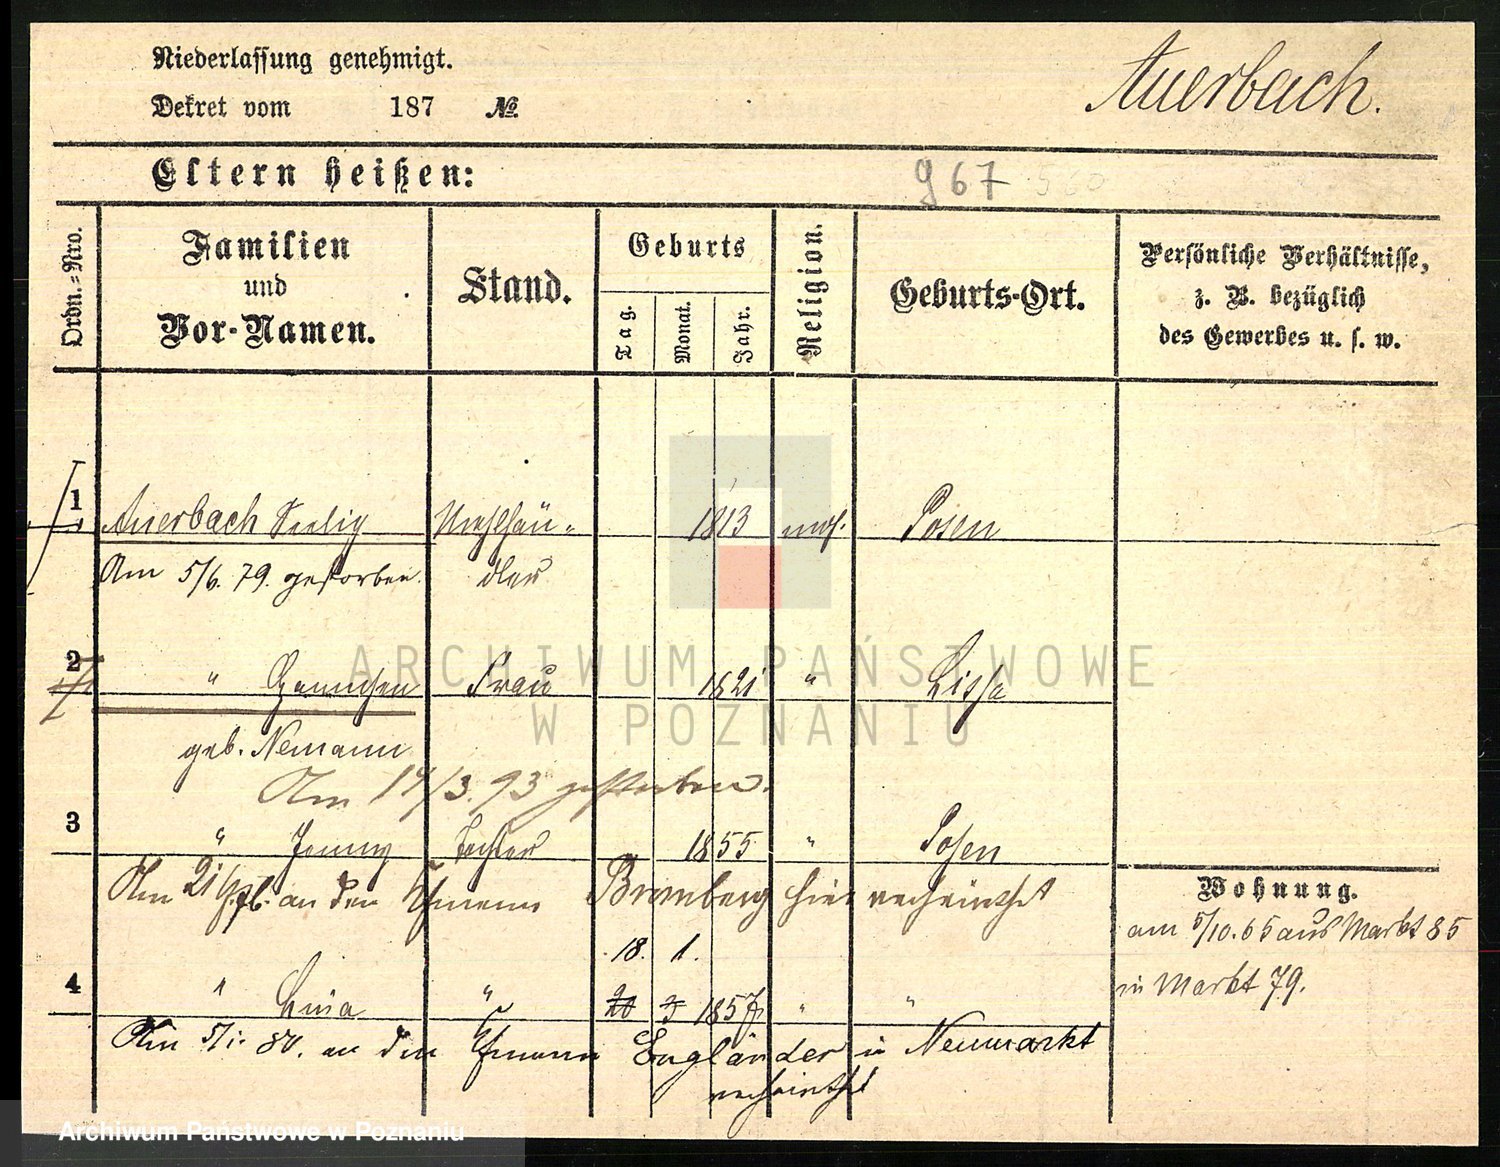 Niederlassung genehmigt.
Dekret vom 187 №
Auerbach.
Eltern heißen:
967 560
Ordn.-Nro.
Familien
und
Vor-Namen.
Stand.
Geburts
Tag.
Monat.
Jahr.
Religion.
Geburts-Ort.
Persönliche Verhältnisse,
z. B. bezüglich
des Gewerbes u. s. w.
1 Auerbach Seelig Mehlhän- 1813 mos. Posen
Am 5/6. 79. gestorben. dler
2 " Frau 1821 " Lissa
geb. Nemann
Am 19/3. 93 gestorben.
3 " Jenny Tochter 1855 " Posen
Am 21 an den Ehmann Bromberg hier verheirathet
18. 1.
4 " " 20 3 1857 " "
Am 5/1. 80. an den Ehmann Engländer in Neumarkt
verheirathet
Wohnung.
am 5/10. 65 aus Markt 85
in Markt 79.
ARCHIWUM PAŃSTWOWE
W POZNANIU
Archiwum Państwowe w Poznaniu